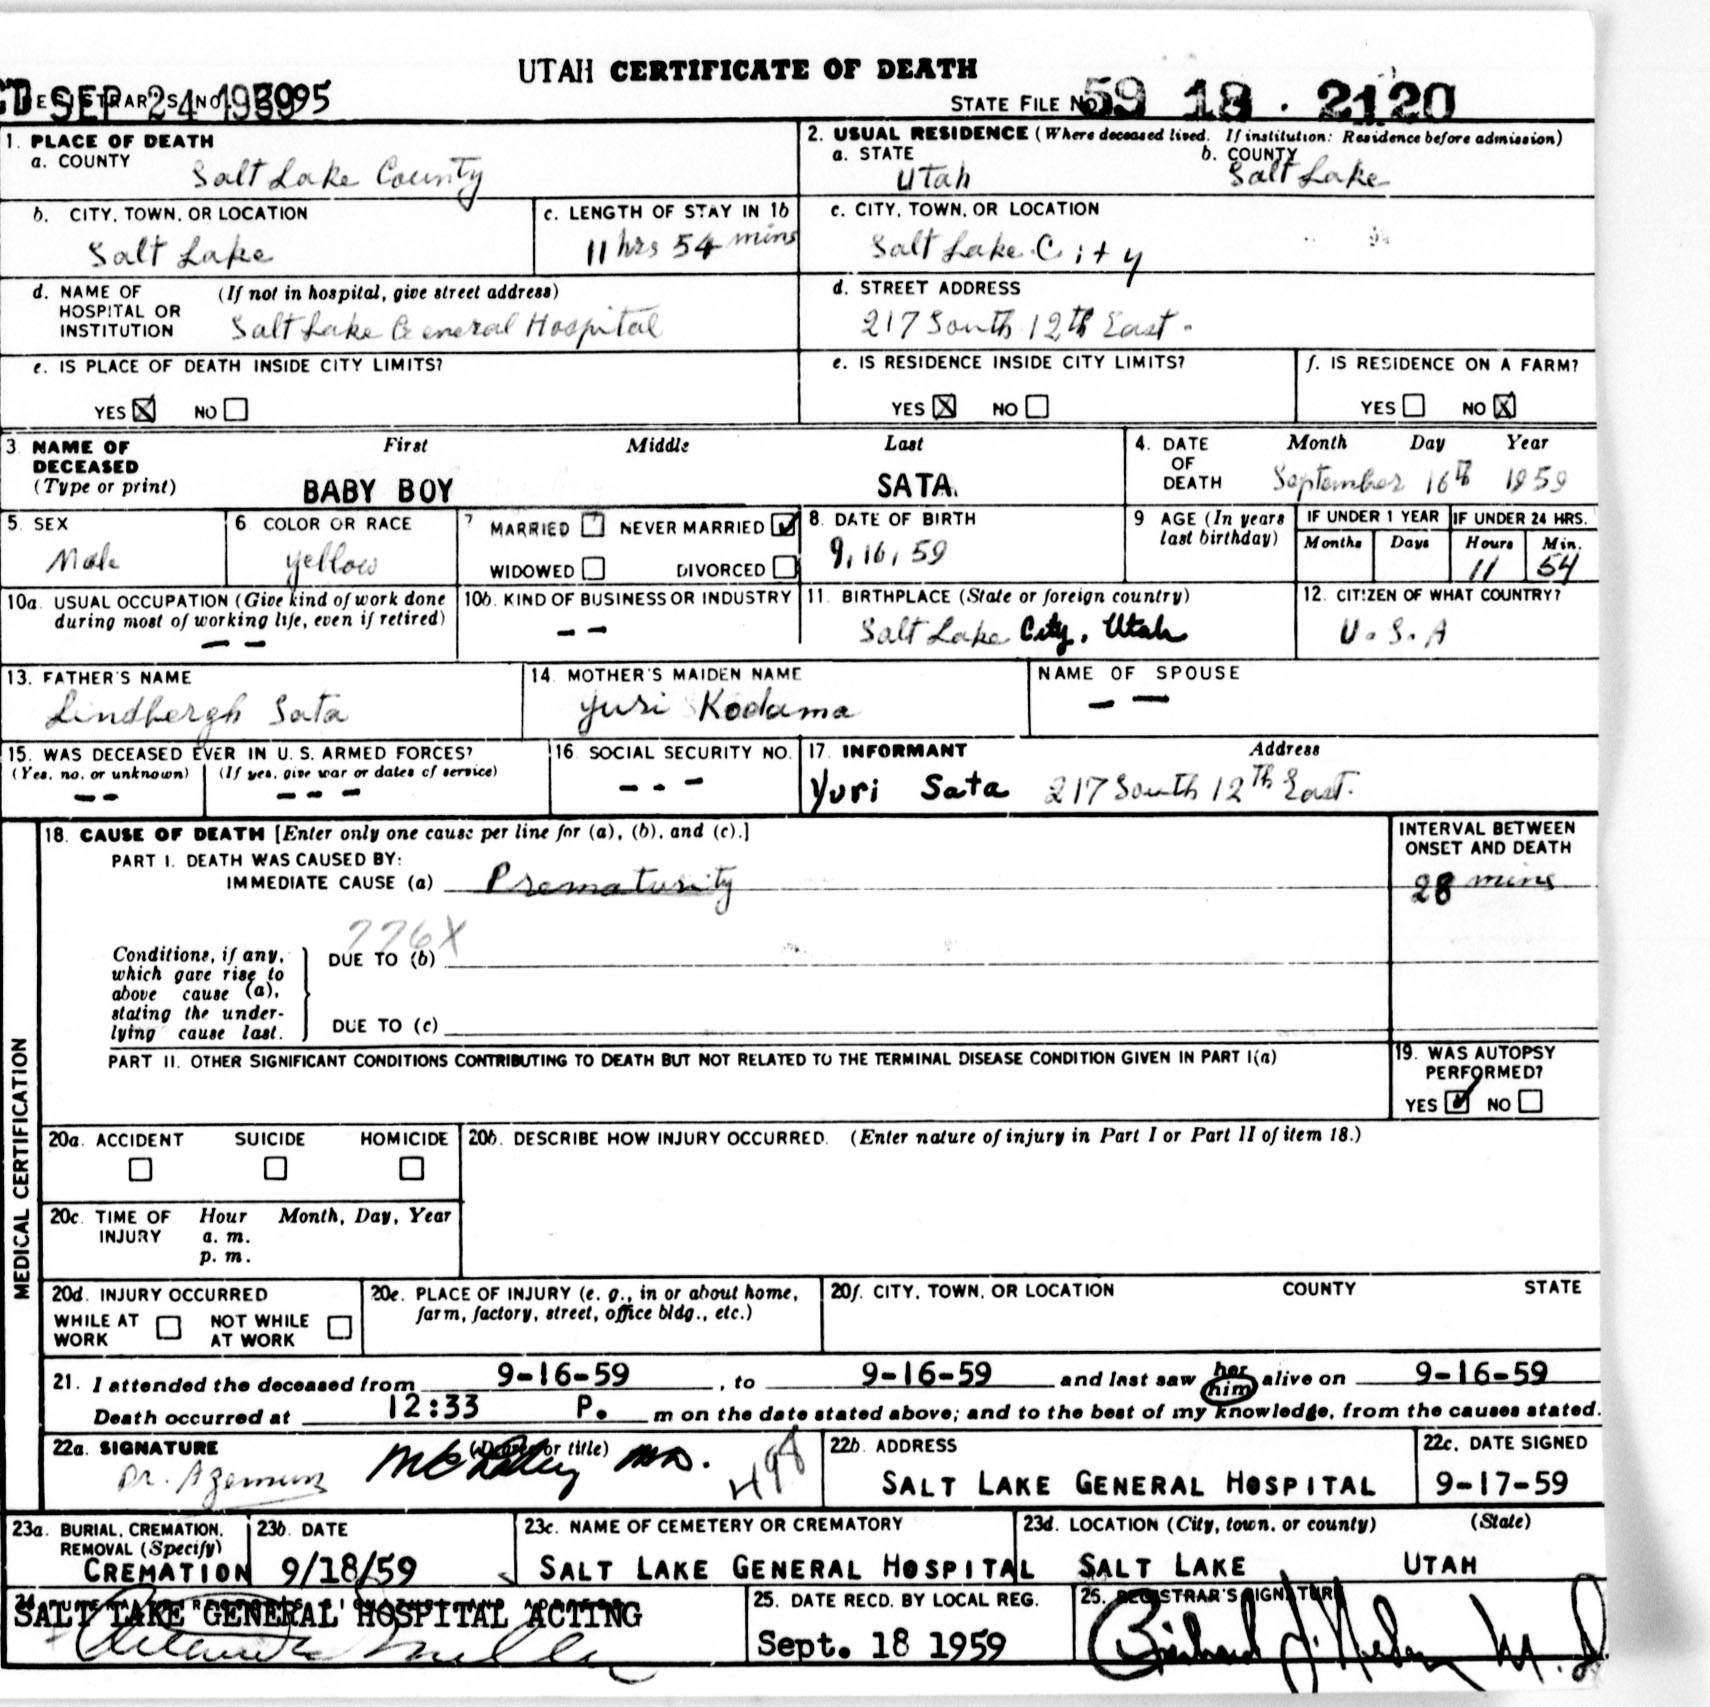 UTAH CERTIFICATE OF DEATH
SEP 24 1959
STATE FILE No. 59 18 · 2120
1. PLACE OF DEATH
a. COUNTY Salt Lake County
2. USUAL RESIDENCE (Where deceased lived. If institution: Residence before admission)
a. STATE Utah b. COUNTY Salt Lake
b. CITY, TOWN, OR LOCATION Salt Lake
c. LENGTH OF STAY IN 1b 11 hrs 54 mins
c. CITY, TOWN, OR LOCATION Salt Lake City
d. NAME OF HOSPITAL OR INSTITUTION (If not in hospital, give street address) Salt Lake General Hospital
d. STREET ADDRESS 217 South 12th East.
e. IS PLACE OF DEATH INSIDE CITY LIMITS?
YES NO
e. IS RESIDENCE INSIDE CITY LIMITS?
YES NO
f. IS RESIDENCE ON A FARM?
YES NO
3. NAME OF DECEASED (Type or print) First Middle Last
BABY BOY SATA.
4. DATE OF DEATH Month Day Year
September 16th 1959
5. SEX Male
6 COLOR OR RACE yellow
7 MARRIED NEVER MARRIED
WIDOWED DIVORCED
8. DATE OF BIRTH 9, 16, 59
9 AGE (In years last birthday)
IF UNDER 1 YEAR Months Days
IF UNDER 24 HRS. Hours Min.
11 54
10a. USUAL OCCUPATION (Give kind of work done during most of working life, even if retired) – –
10b. KIND OF BUSINESS OR INDUSTRY – –
11. BIRTHPLACE (State or foreign country) Salt Lake City, Utah
12. CITIZEN OF WHAT COUNTRY? U.S.A
13. FATHER'S NAME Lindbergh Sata
14. MOTHER'S MAIDEN NAME Yuri Kodama
NAME OF SPOUSE – –
15. WAS DECEASED EVER IN U. S. ARMED FORCES?
(Yes, no, or unknown) (If yes, give war or dates of service)
– – – – –
16. SOCIAL SECURITY NO. - - -
17. INFORMANT Address
Yuri Sata 217 South 12th East.
MEDICAL CERTIFICATION
18. CAUSE OF DEATH [Enter only one cause per line for (a), (b), and (c).]
INTERVAL BETWEEN ONSET AND DEATH
PART I. DEATH WAS CAUSED BY:
IMMEDIATE CAUSE (a) Prematurity 28 mins
776X
Conditions, if any, which gave rise to above cause (a), stating the underlying cause last.
DUE TO (b)
DUE TO (c)
PART II. OTHER SIGNIFICANT CONDITIONS CONTRIBUTING TO DEATH BUT NOT RELATED TO THE TERMINAL DISEASE CONDITION GIVEN IN PART I(a)
19. WAS AUTOPSY PERFORMED?
YES NO
20a. ACCIDENT SUICIDE HOMICIDE
20b. DESCRIBE HOW INJURY OCCURRED. (Enter nature of injury in Part I or Part II of item 18.)
20c. TIME OF INJURY Hour Month, Day, Year
a. m.
p. m.
20d. INJURY OCCURRED
WHILE AT WORK NOT WHILE AT WORK
20e. PLACE OF INJURY (e. g., in or about home, farm, factory, street, office bldg., etc.)
20f. CITY, TOWN, OR LOCATION COUNTY STATE
21. I attended the deceased from 9-16-59, to 9-16-59 and last saw her him alive on 9-16-59
Death occurred at 12:33 P. m on the date stated above; and to the best of my knowledge, from the causes stated.
22a. SIGNATURE (Degree or title)
Dr. MD.
22b. ADDRESS SALT LAKE GENERAL HOSPITAL
22c. DATE SIGNED 9-17-59
23a. BURIAL, CREMATION, REMOVAL (Specify) CREMATION
23b. DATE 9/18/59
23c. NAME OF CEMETERY OR CREMATORY SALT LAKE GENERAL HOSPITAL
23d. LOCATION (City, town, or county) (State) SALT LAKE UTAH
SALT LAKE GENERAL HOSPITAL ACTING
25. DATE RECD. BY LOCAL REG. Sept. 18 1959
25. REGISTRAR'S SIGNATURE